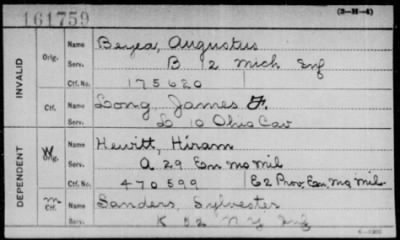 161759
(3-H-4)
INVALID
Orig. Name Beyea, Augustus
Serv. B 12 Mich Inf
Ctf. No. 175620
Ctf. Name Long, James F.
Serv. L 10 Ohio Cav
DEPENDENT
W Orig. Name Hewitt, Hiram
Serv. A 29 En Mo Mil
Ctf. No. 470599 E 2 Prov. En. Mo Mil.
m Ctf. Name Sanders, Sylvester
Serv. K 52 N Y Inf